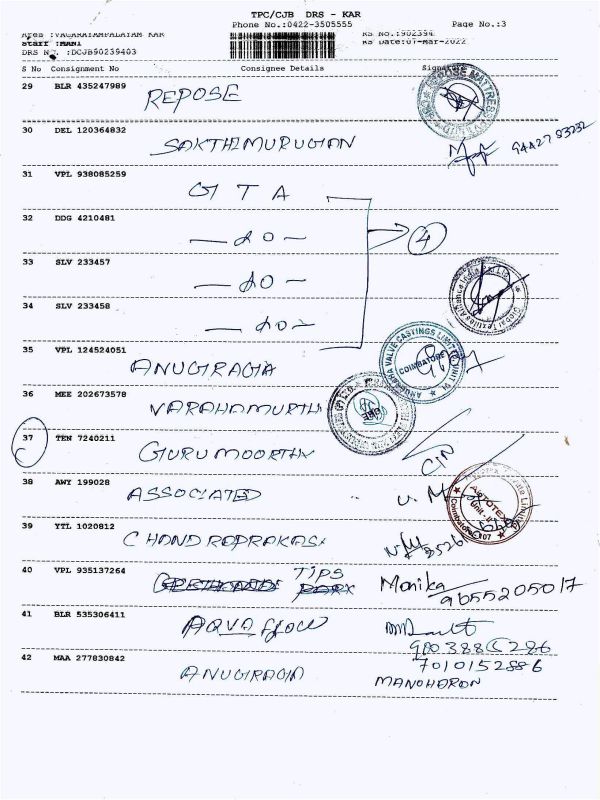 TPC/CJB DRS - KAR
Phone No.:0422-3505555 Page No.:3
RS No.:902394
Staff :MANI RS Date:07-Mar-2022
DRS No. :DCJB90239403
S No Consignment No Consignee Details Signature
29 BLR 435247989 REPOSE
30 DEL 120364832 SAKTHIMURUGAN 94427 93232
31 VPL 938085259 G T A
32 DDG 4210481 — do — 4
33 SLV 233457 — do —
34 SLV 233458 — do —
35 VPL 124524051 ANUGRAGA
36 MEE 202673578 VARAHAMURTHI
37 TEN 7240211 GURUMOORTHY
38 AWY 199028 ASSOCIATED
39 YTL 1020812 CHANDRAPRAKASH
40 VPL 935137264 TIPS Monika
9655205017
41 BLR 535306411 AQVA flow
7010152886
42 MAA 277830842 ANUGRAGA MANOHARAN